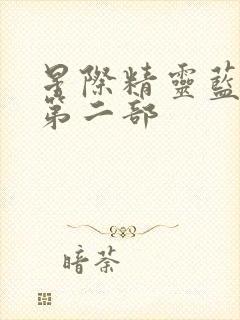 星際精靈藍
第二部
暗荼